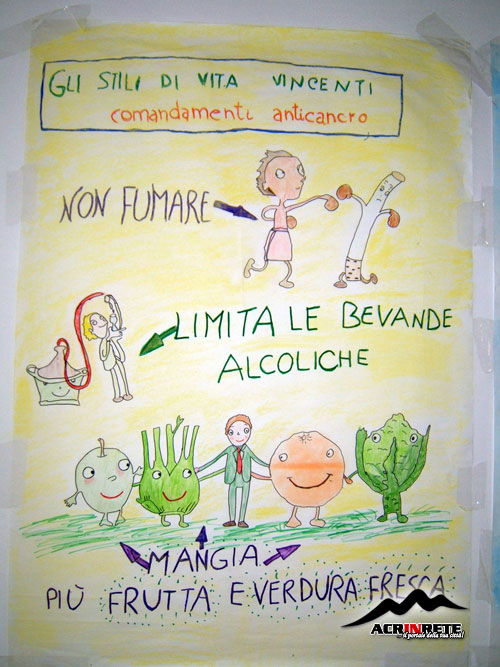 GLI STILI DI VITA VINCENTI
comandamenti anticancro
NON FUMARE
LIMITA LE BEVANDE
ALCOLICHE
MANGIA
PIÙ FRUTTA E VERDURA FRESCA
ACRINRETE
il portale della tua città!